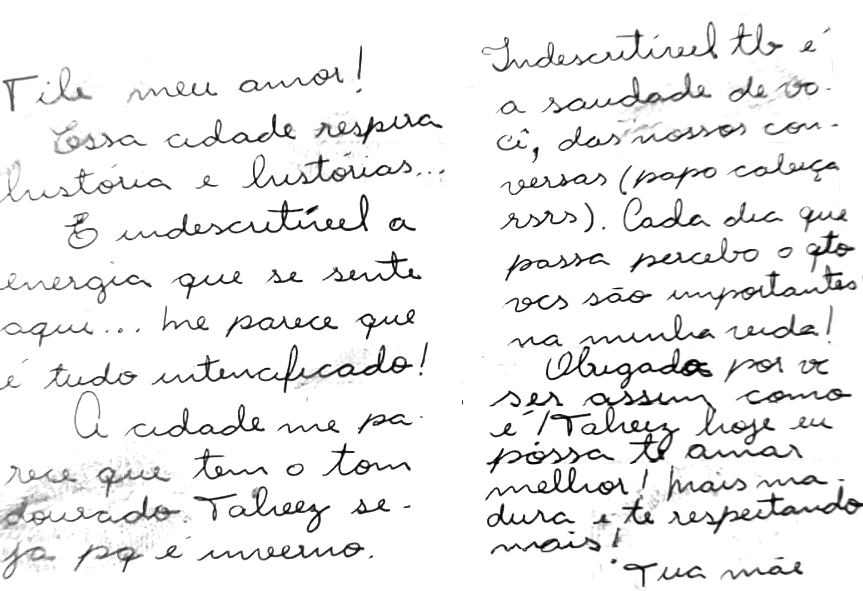 Tile meu amor!
Essa cidade respira
história e histórias...
É indescritível a
energia que se sente
aqui... me parece que
é tudo intencificado!
A cidade me pa-
rece que tem o tom
dourado. Talveez se-
ja pq é inverno.
Indescritível tb é
a saudade de vo-
cê, das nossos con-
versas (papo cabeça
rsrs). Cada dia que
passa percebo o qto
vcs são importantes
na minha vida!
Obrigada por vc
ser assim como
é! Talveez hoje eu
possa te amar
melhor! Mais ma-
dura e te respeitando
mais!
Tua mãe